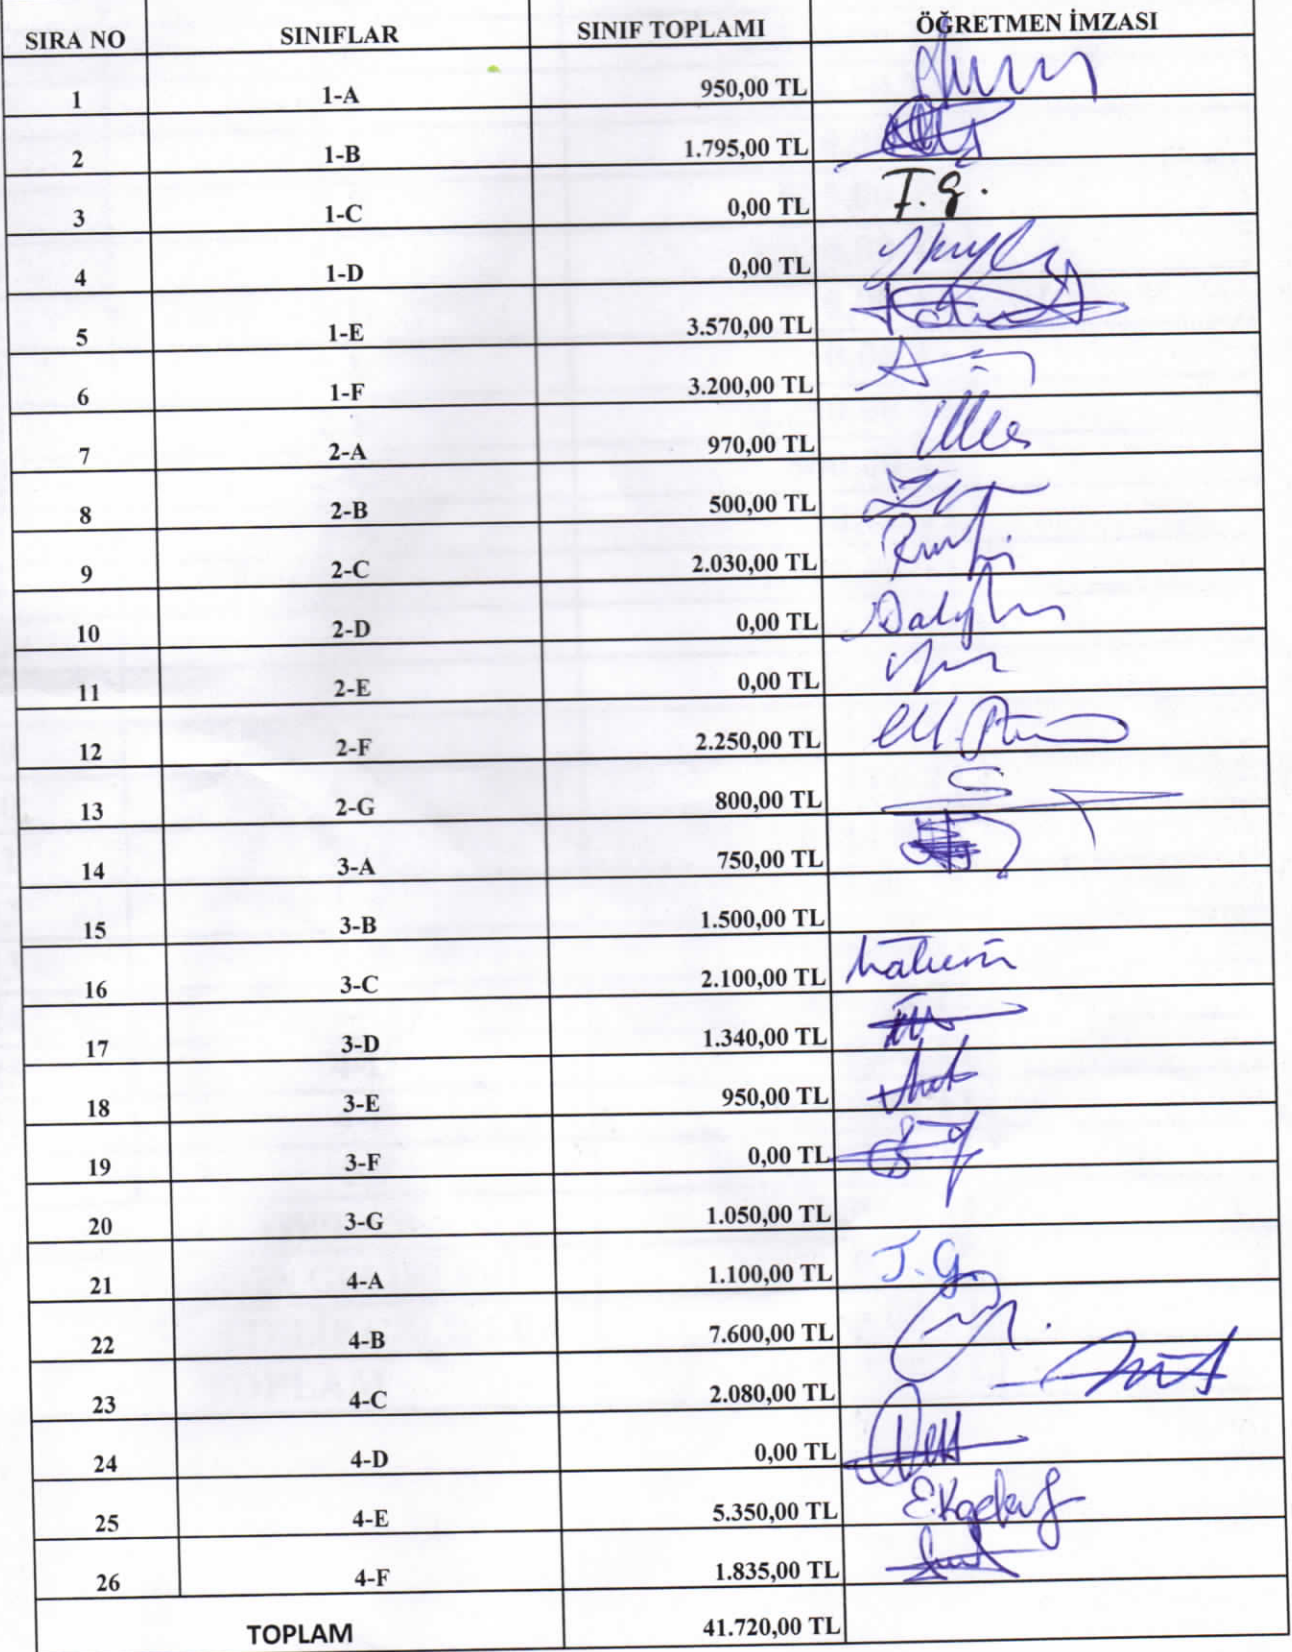 SIRA NO SINIFLAR SINIF TOPLAMI ÖĞRETMEN İMZASI
1 1-A 950,00 TL
2 1-B 1.795,00 TL
3 1-C 0,00 TL F.G.
4 1-D 0,00 TL
5 1-E 3.570,00 TL
6 1-F 3.200,00 TL
7 2-A 970,00 TL
8 2-B 500,00 TL
9 2-C 2.030,00 TL
10 2-D 0,00 TL
11 2-E 0,00 TL
12 2-F 2.250,00 TL
13 2-G 800,00 TL
14 3-A 750,00 TL
15 3-B 1.500,00 TL
16 3-C 2.100,00 TL
17 3-D 1.340,00 TL
18 3-E 950,00 TL
19 3-F 0,00 TL
20 3-G 1.050,00 TL
21 4-A 1.100,00 TL J.G.
22 4-B 7.600,00 TL
23 4-C 2.080,00 TL
24 4-D 0,00 TL
25 4-E 5.350,00 TL
26 4-F 1.835,00 TL
TOPLAM 41.720,00 TL